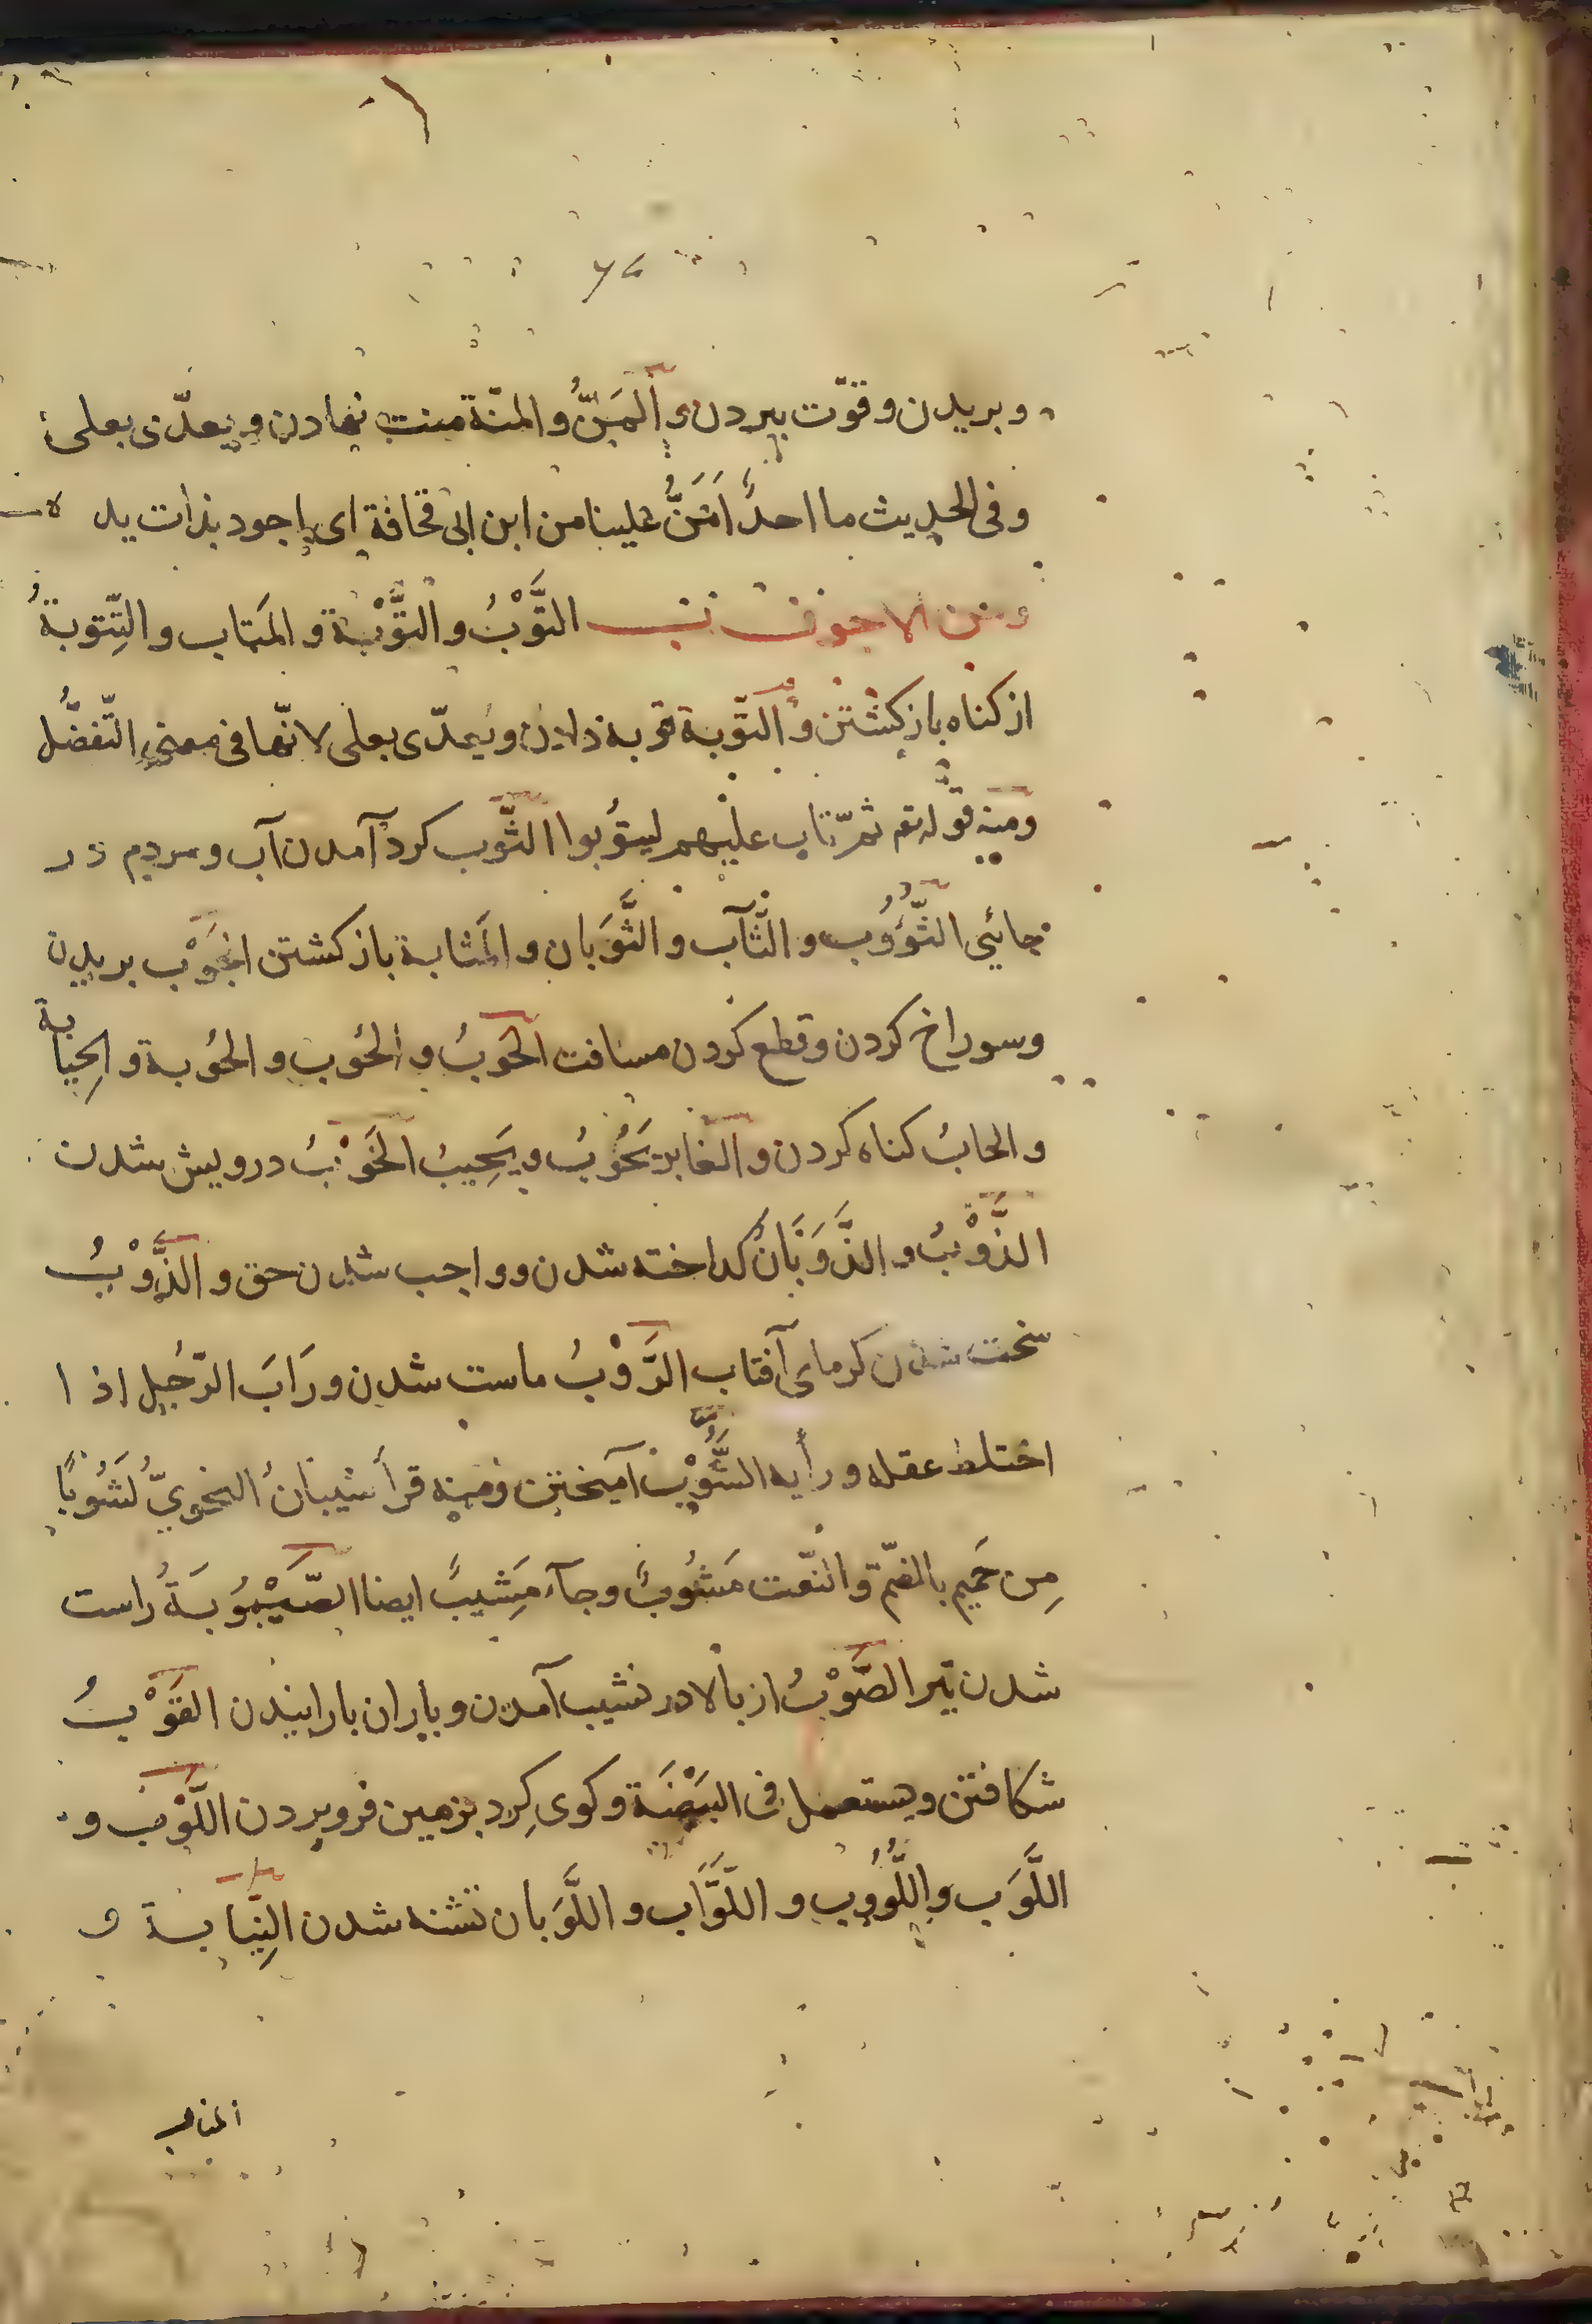 ۷۶
وبریدن وقوّت ببردن واَلمَنُّ والمنّة منت نهادن ویعدّی بعلی
وفی الحدیث ما احدٌ اَمَنَّ علینا من ابن ابی قحافة ای اجود بذات یده
ومن الاجوف ب التَّوْبُ والتَّوْبة والمَتاب والتِّتوبةُ
از کناه باز کشتن والتّوبة توبه دادن ویُعدّی بعلی لانّها فی معنی التّفضُّل
ومنه قوله تع ثمّ تاب علیهم لیتوُبوا الثَّوب کرد آمدن آب ومردم در
جائی الثُّؤُوب والثَّآب والثَّوَبان والمَثابة باز کشتن الجَوْب بریدن
وسوراخ کردن وقطع کردن مسافت الحَوبُ والحُوب والحُوبة والحِیابة
والحابُ کناه کردن والغابر یَحُوبُ ویَحِیبُ الخَوْبُ درویش شدن
الذَّوْبُ والذَّوَبَانُ کداخته شدن وواجب شدن حق والذَّوْبُ
سخت شدن کرمای آفتاب الرَّوْبُ ماست شدن ورَابَ الرّجُل اذا
اختلط عقله ورأیه الشَّوْب آمیختن ومنه قرأ شیبانُ النحویّ لَشُوبًا
مِن حَمیم بالضّم والنّعت مَشُوبٌ وجآء مَشِیبٌ ایضا الصَّیْبُوبَةُ راست
شدن تیر الصَّوْبُ از بالا در نشیب آمدن وباران بارانیدن القَوْبُ
شکافتن ویستعمل فی البَیْضَة وکوی کِرد بزمین فرو بردن اللَّوْب و
اللَّوَب واللُّوُوب واللَّوَّاب واللَّوَبان تشنه شدن النِّیابة و
المناب